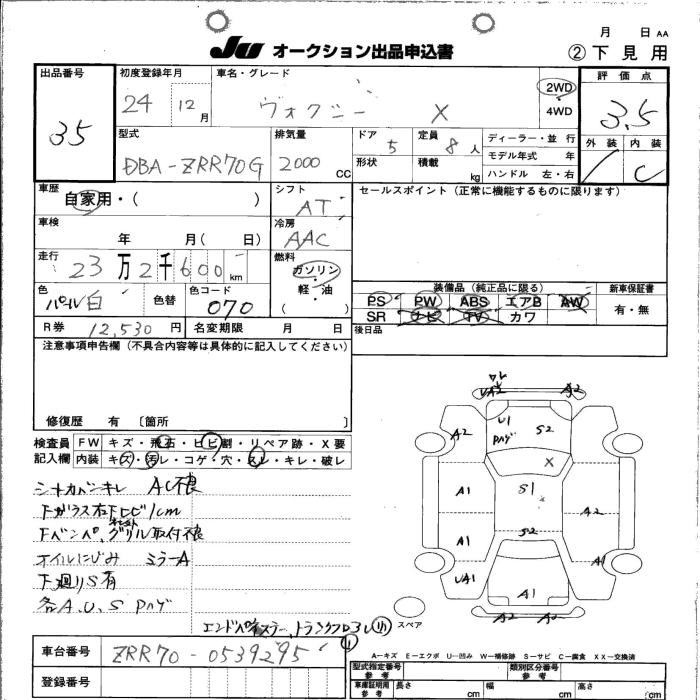 月 日 AA
JU オークション出品申込書 ②下見用
出品番号 初度登録年月 車名・グレード 評価点
35 24 12月 ヴォクシー X 2WD 4WD 3.5
型式 排気量 ドア 5 定員 8人 ディーラー・並行 外装 内装
DBA-ZRR70G 2000CC 形状 積載 kg モデル年式 年 C
ハンドル 左・右
車歴 シフト セールスポイント(正常に機能するものに限ります)
自家用・( ) AT
車検 冷房
年 月( 日) AAC
走行 燃料
23万2千600km ガソリン・軽油
色 色替 色コード ( )
パール白 070
装備品(純正品に限る) 新車保証書
PS PW ABS エアB AW 有・無
SR ナビ TV カワ
R券 12,530円 名変期限 月 日 後日品
注意事項申告欄(不具合内容等は具体的に記入してください)
修復歴 有 〔箇所 〕
検査員 FW キズ・飛石・ヒビ割・リペア跡・X要
記入欄 内装 キズ・汚レ・コゲ・穴・スレ・キレ・破レ
シートカバーキレ AC不良
Fガラス右下ヒビ1cm
Fバンパ、グリル取付不良
オイルにじみ ミラーA
下廻りS有
各A.U.S Pハゲ
エンドパネスラー、トランクフロア
UA2 A2
A2 U1 Pハゲ S2
X
A1 S1 A2
A1 S2 A1
UA1 A1
A2 A2
スペア
車台番号 ZRR70-0539295
登録番号
A—キズ E—エクボ U—凹み W—補修跡 S—サビ C—腐食 XX—交換済
型式指定番号 参考 類別区分番号 参考
車庫証明用 参考 長さ cm 幅 cm 高さ cm